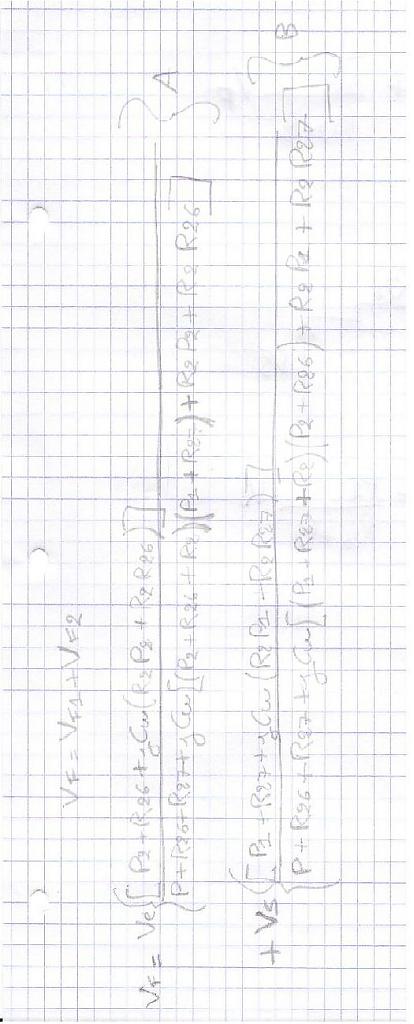 VF = VF1 + VF2
VF = Ve { [ P2 + R26 + jCω (R2P2 + R2R26) ] / P + R26 + R27 + jCω [ (P2 + R26 + R2) (P1 + R27) + R2P2 + R2R26 ] } A
+ VS { [ P1 + R27 + jCω (R2P1 + R2R27) ] / P + R26 + R27 + jCω [ (P1 + R27 + R2) (P2 + R26) + R2P1 + R2R27 ] } B